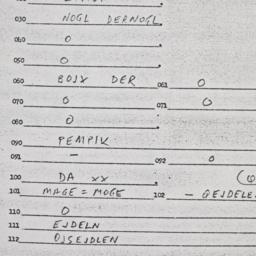 030 NOGL DERNOGL.
040 O
050 O
060 BOJX DER 061 O
070 O 071 O
080 O
090 PEMPIK
091 – 092 O
100 DA XX
101 MAGE = MOGE 102 – GEJDELE
110 O
111 EJDELN
112 OJSEJDLEN